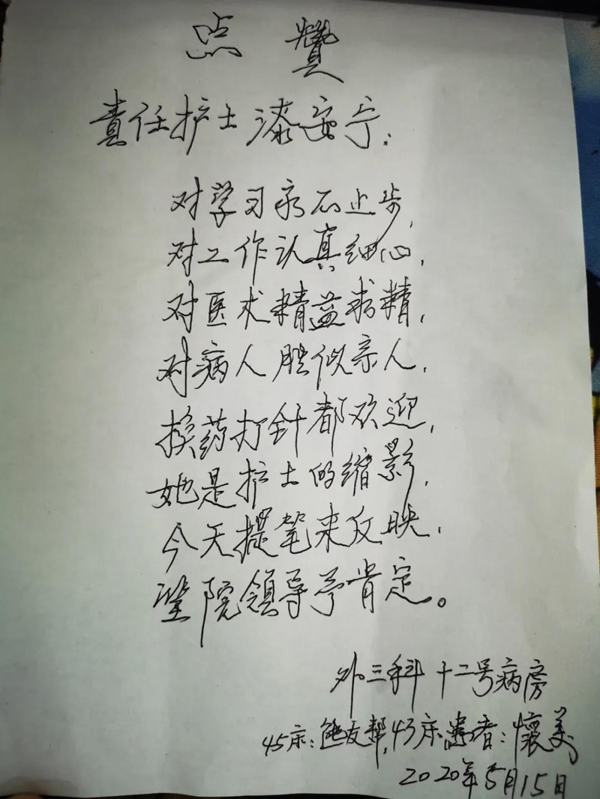 点贊
責任护士漆安宁:
对学习永不止步,
对工作认真细心,
对医术精益求精,
对病人胜似亲人,
换药打针都欢迎,
她是护士的缩影,
今天提笔来反映,
望院領导予肯定。
外三科十二号病房
45床:熊友帮,43床患者:懷美
2020年5月15日